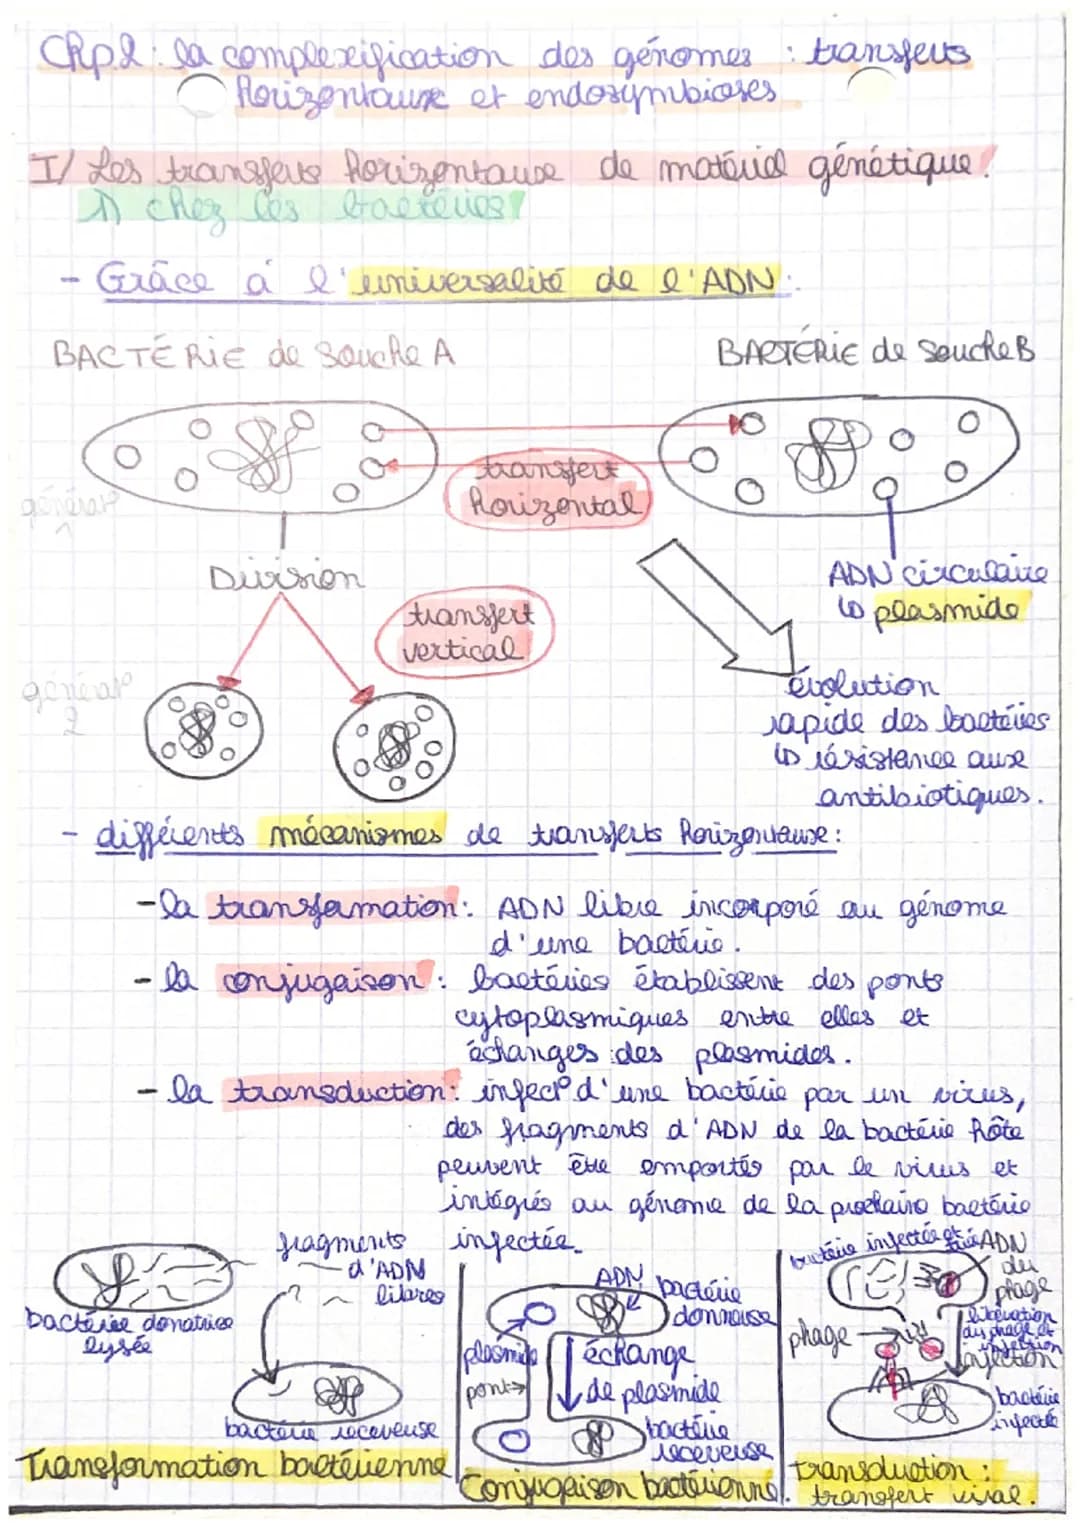 Chp2 : la complexification des génomes : transferts
horizontaux et endosymbioses
I/ Les transferts horizontaux de matériel génétique.
1) chez les bactéries
- Grâce à l'universalité de l'ADN :
BACTÉRIE de souche A
BACTÉRIE de souche B
transfert
horizontal
générat°
1
Division
ADN circulaire
↳ plasmide
transfert
vertical
générat°
2
évolution
rapide des bactéries
↳ résistance aux
antibiotiques.
- différents mécanismes de transferts horizontaux :
- la transformation : ADN libre incorporé au génome
d'une bactérie.
- la conjugaison : bactéries établissent des ponts
cytoplasmiques entre elles et
échanges des plasmides.
- la transduction : infect° d'une bactérie par un virus,
des fragments d'ADN de la bactérie hôte
peuvent être emportés par le virus et
intégrés au génome de la prochaine bactérie
infectée.
fragments
d'ADN
libres
bactérie donatrice
lysée
bactérie receveuse
Transformation bactérienne
ADN
bactérie
donneuse
plasmide
pont
échange
de plasmide
bactérie
receveuse
Conjugaison bactérienne.
bactérie infectée et tuée
ADN
du
phage
phage
libération
du phage et
injection
bactérie
infectée
transduction :
transfert viral.